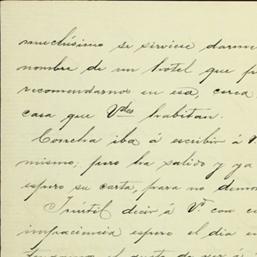 muchísimo se sirviese darme
nombre de un hotel que
recomendarnos en esa, cerca
casa que Vdes habitan.
Concha iba á escribir á V.
mismo, pero ha salido y ya
espero su carta, para no demo
Inutil decir á Vª con
impaciencia espero el dia en
el gusto de ver á